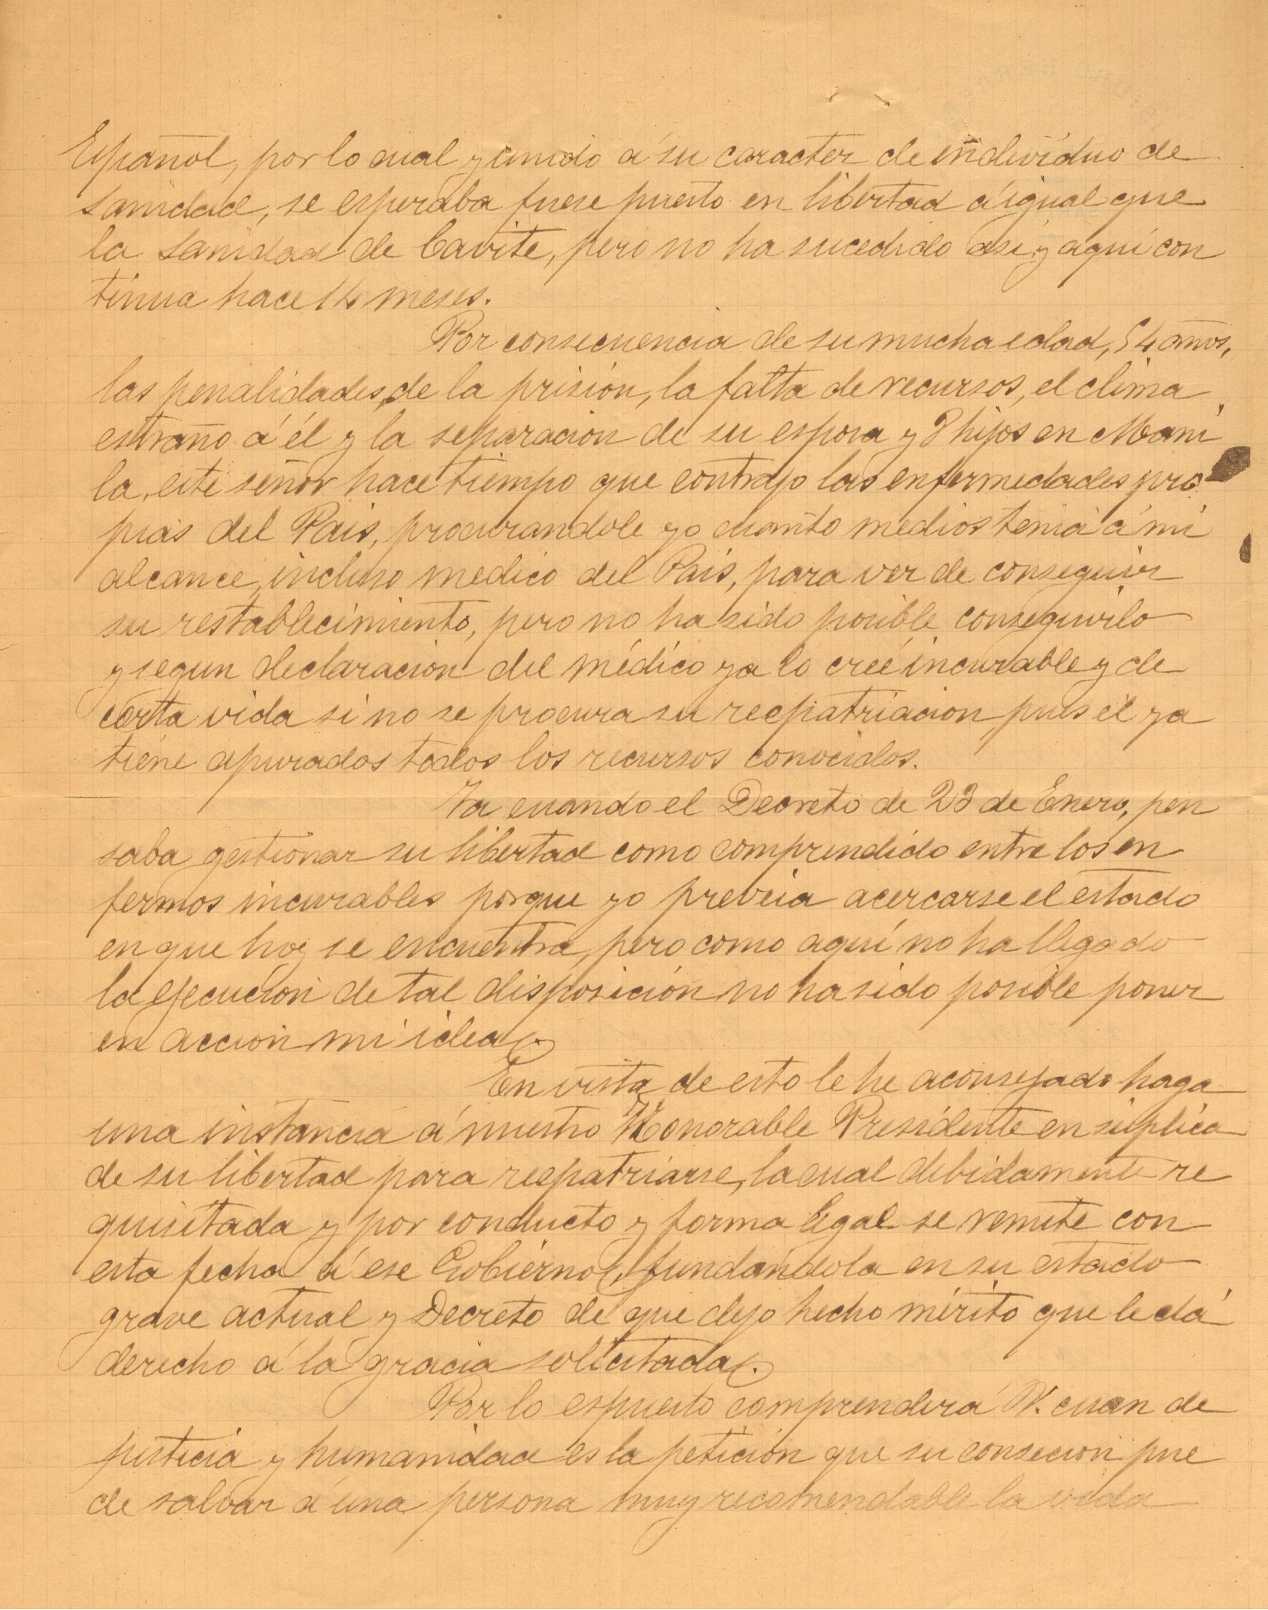 Español, por lo cual y unido á su caracter de individuo de
Sanidad, se esperaba fuese puesto en libertad á igual que
la Sanidad de Cavite, pero no ha sucedido asi y aquí con
tinua hace 14 meses.
Por consecuencia de su mucha edad, 54 años,
las penalidades de la prisión, la falta de recursos, el clima
estraño á él y la separacion de su esposa y hijos en Mani
la, este señor hace tiempo que contrajo las enfermedades pro
pias del Pais, procurandole yo cuanto medios tenia á mi
alcance, incluso medico del Pais, para ver de conseguir
su restablecimiento, pero no ha sido posible conseguirlo
y segun declaracion del médico ya lo creé incurable y de
corta vida si no se procura su recpatriacion pues él ya
tiene apurados todos los recursos conocidos.
Ya cuando el Decreto de 23 de Enero, pen
saba gestionar su libertad como comprendido entre los en
fermos incurables porque yo preveia acercarse el estado
en que hoy se encuentra, pero como aquí no ha llegado
la ejecución de tal disposición no ha sido posible poner
en accion mi idea.
En vista de esto le he aconsejado haga
una instancia á nuestro Honorable Presidente en súplica
de su libertad para respatriarse, la cual debidamente re
quisitada y por conducto y forma legal se remite con
esta fecha á ese Gobierno, fundandola en su estado
grave actual y Decreto de que dejo hecho mérito que le dá
derecho á la gracia solicitada.
Por lo espuesto comprenderá V. cuan de
justicia y humanidad es la petición que su consecion pue
de salvar á una persona muy recomendable la vida